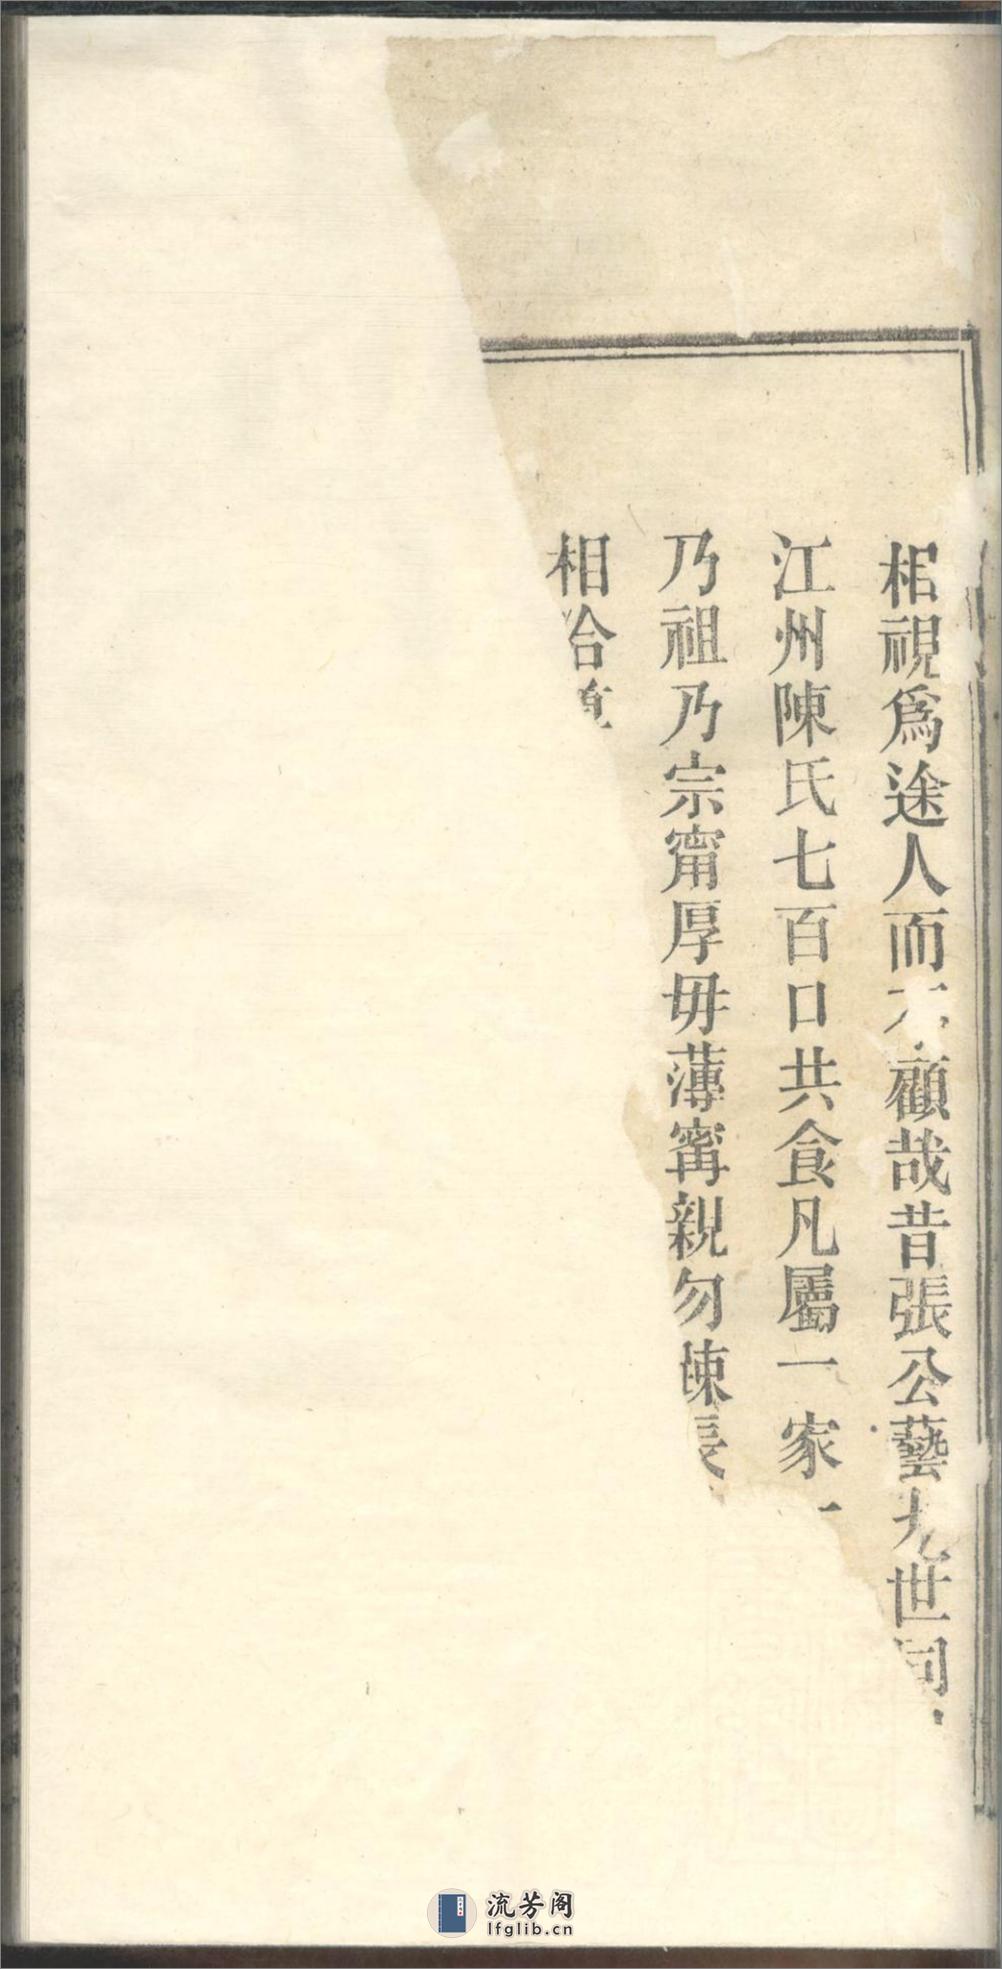 相視爲途人而不顧哉昔張公藝九世同
江州陳氏七百口共食凡屬一家
乃祖乃宗甯厚毋薄甯親勿疎長
相洽
流芳阁
lfglib.cn